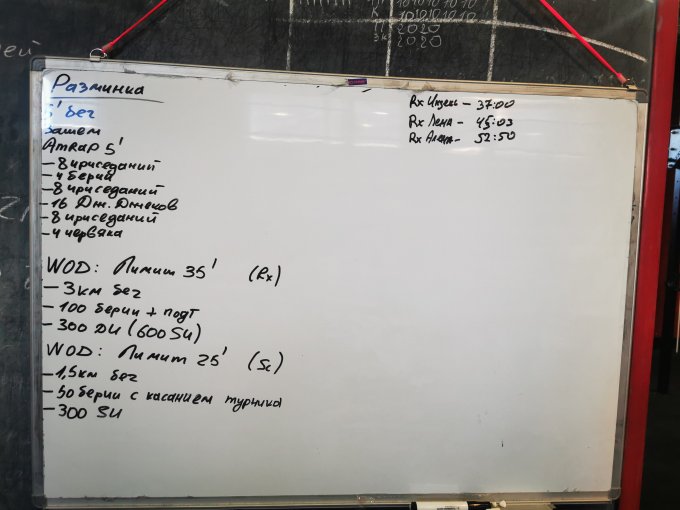 Разминка
5' бег
Затем
AmRaP 5'
- 8 приседаний
- 4 берпи
- 8 приседаний
- 16 Дж. Джеков
- 8 приседаний
- 4 червяка
WOD: Лимит 35' (Rx)
- 3км бег
- 100 берпи + подт
- 300 DU (600 SU)
WOD: Лимит 25' (Sc)
- 1,5км бег
- 50 берпи с касанием турника
- 300 SU
Rx - 37:00
Rx Лена - 45:03
Rx Алена - 52:50
10 10 10 10 10
10 10 10 10 10
2020
2020